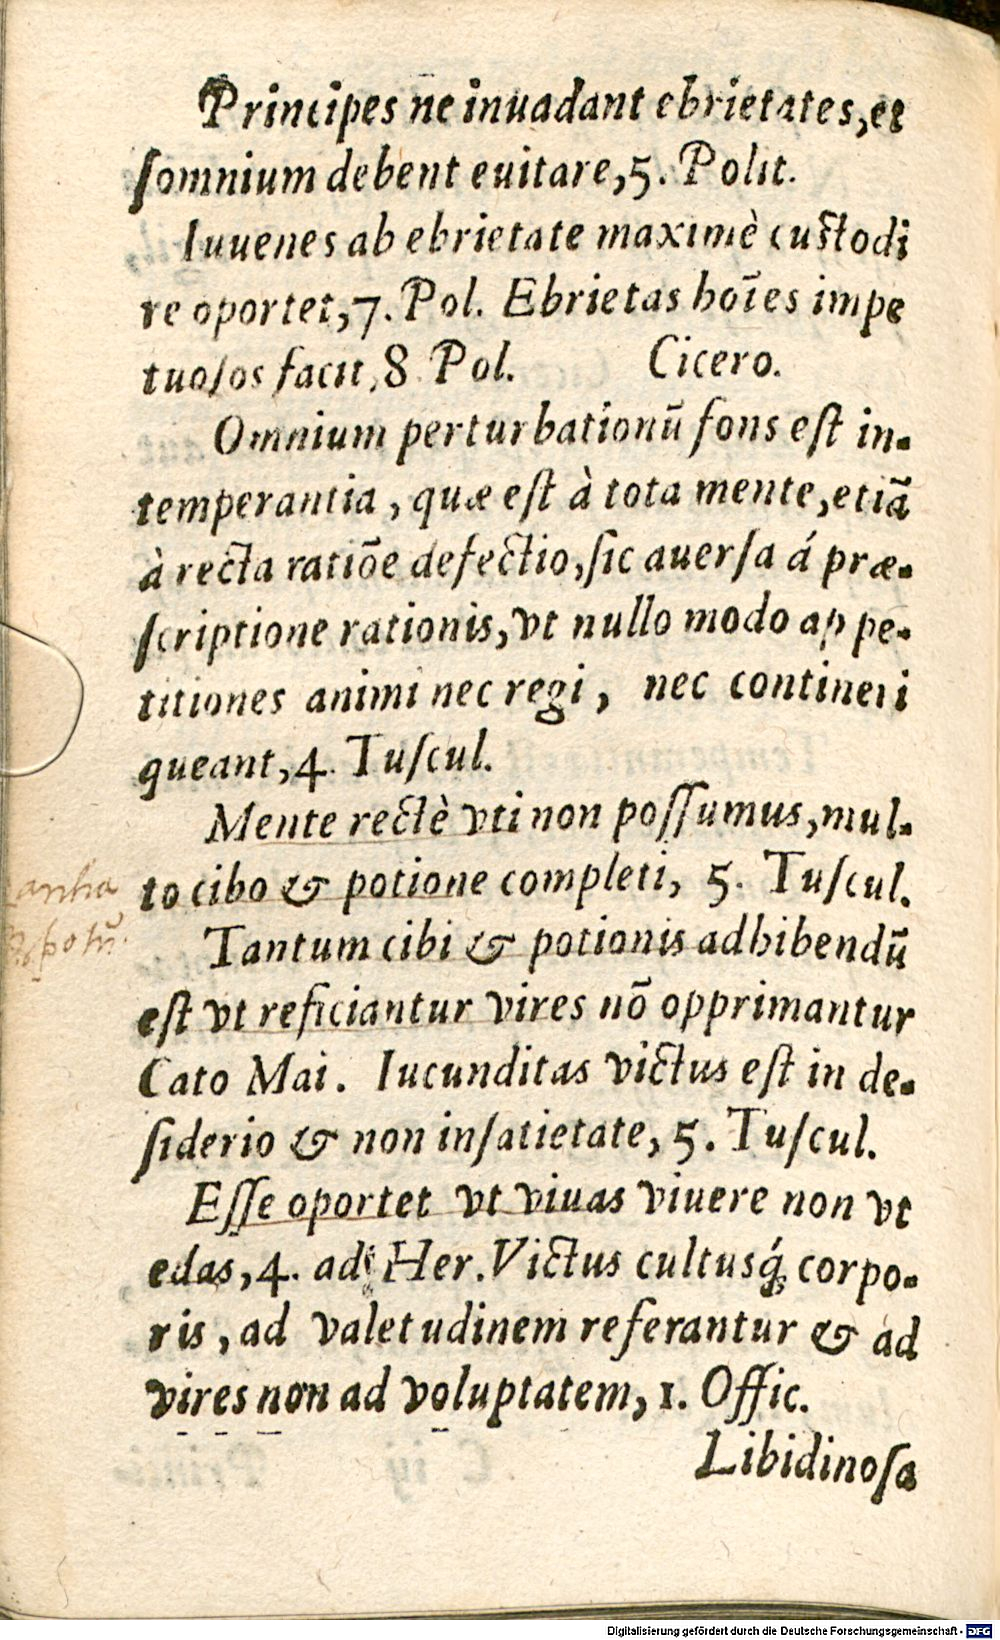 Principes ne inuadant ebrietates, et
ſomnium debent euitare, 5. Polit.
Iuuenes ab ebrietate maximè cuſtodi
re oportet, 7. Pol. Ebrietas hoīes impe
tuoſos facit, 8 Pol. Cicero.
Omnium perturbationū fons eſt in-
temperantia, quæ eſt à tota mente, etiā
à recta ratiōe defectio, ſic auerſa á præ-
ſcriptione rationis, vt nullo modo appe-
titiones animi nec regi, nec contineri
queant, 4. Tuſcul.
Mente rectè vti non poſſumus, mul-
to cibo & potione completi, 5. Tuſcul.
Tantum cibi & potionis adhibendū
eſt vt reficiantur vires nō opprimantur
Cato Mai. Iucunditas victus eſt in de-
ſiderio & non inſatietate, 5. Tuſcul.
Eſſe oportet vt viuas viuere non vt
edas, 4. ad Her. Victus cultusq́; corpo-
ris, ad valetudinem referantur & ad
vires non ad voluptatem, 1. Offic.
Libidinoſa
potū.
Digitalisierung gefördert durch die Deutsche Forschungsgemeinschaft - DFG